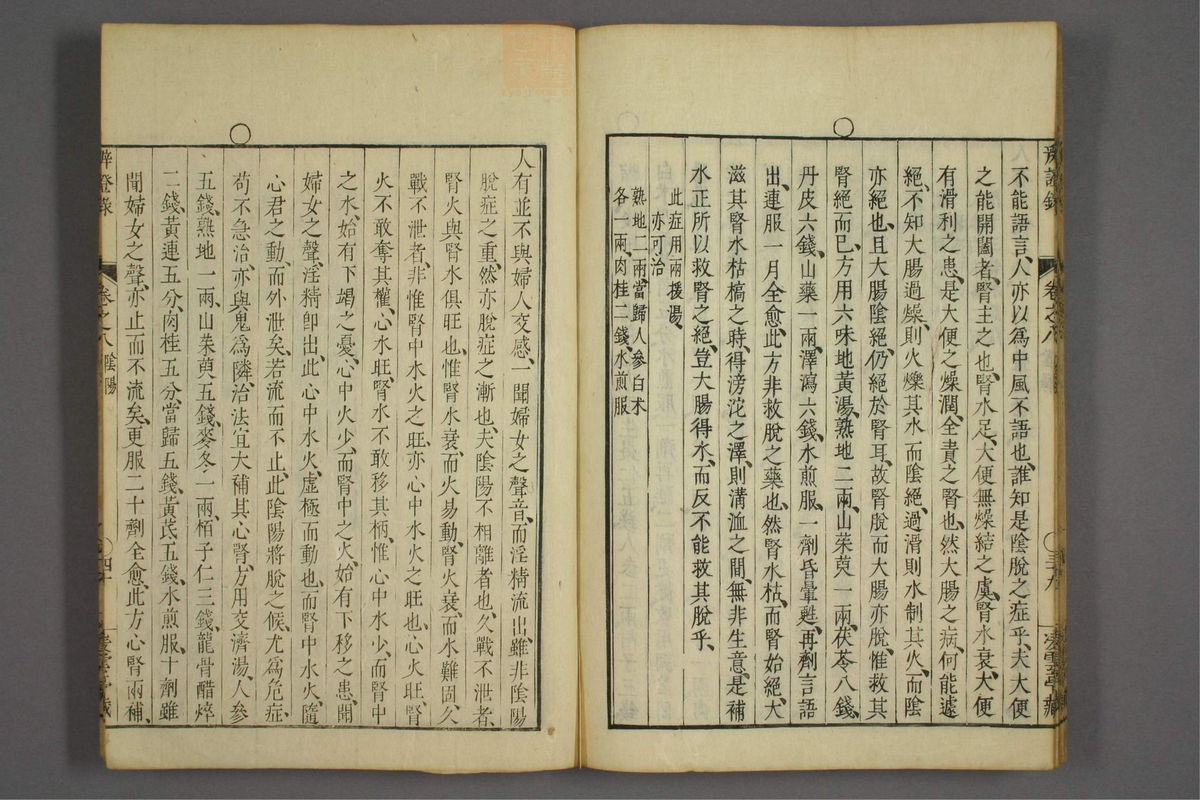 辨證錄
卷之八
三十九
不能語言、人亦以爲中風不語也、誰知是陰脫之症乎、夫大便
之能開闔者、腎主之也、腎水足、大便無燥結之虞、腎水衰、大便
有滑利之患、是大便之燥潤、全責之腎也、然大腸之病、何能遽
絕、不知大腸過燥、則火爍其水、而陰絕、過滑則水制其火、而陰
亦絕也、且大腸陰絕、仍絕於腎耳、故腎脫而大腸亦脫、惟救其
腎絕而已、方用六味地黃湯、熟地二兩、山茱萸一兩、茯苓八錢、
丹皮六錢、山藥一兩、澤瀉六錢、水煎服、一劑昏暈甦、再劑言語
出、連服一月全愈、此方非救脫之藥也、然腎水枯、而腎始絕、大
滋其腎水枯槁之時、得滂沱之澤、則溝洫之間、無非生意、是補
水正所以救腎之絕、豈大腸得水、而反不能救其脫乎、
此症用兩援湯、
亦可治
熟地二兩、當歸人參白朮
各一兩、肉桂二錢水煎服
人有並不與婦人交感、一聞婦女之聲音、而淫精流出、雖非陰陽
脫症之重、然亦脫症之漸也、夫陰陽不相離者也、久戰不泄者、
腎火與腎水俱旺也、惟腎水衰、而火易動、腎火衰、而水難固、久
戰不泄者、非惟腎中水火之旺、亦心中水火之旺也、心火旺、腎
火不敢奪其權、心水旺、腎水不敢移其柄、惟心中水少、而腎中
之水、始有下竭之憂、心中火少、而腎中之火、始有下移之患、聞
婦女之聲、淫精卽出、此心中水火、虛極而動也、而腎中水火、隨
心君之動、而外泄矣、若流而不止、此陰陽將脫之候、尤爲危症、
苟不急治、亦與鬼爲隣、治法宜大補其心腎、方用交濟湯、人參
五錢、熟地一兩、山茱萸五錢、麥冬一兩、栢子仁三錢、龍骨醋焠
二錢、黃連五分、肉桂五分、當歸五錢、黃芪五錢、水煎服、十劑雖
聞婦女之聲、亦止而不流矣、更服二十劑全愈、此方心腎兩補、
辨證錄
卷之八 陰陽
四十